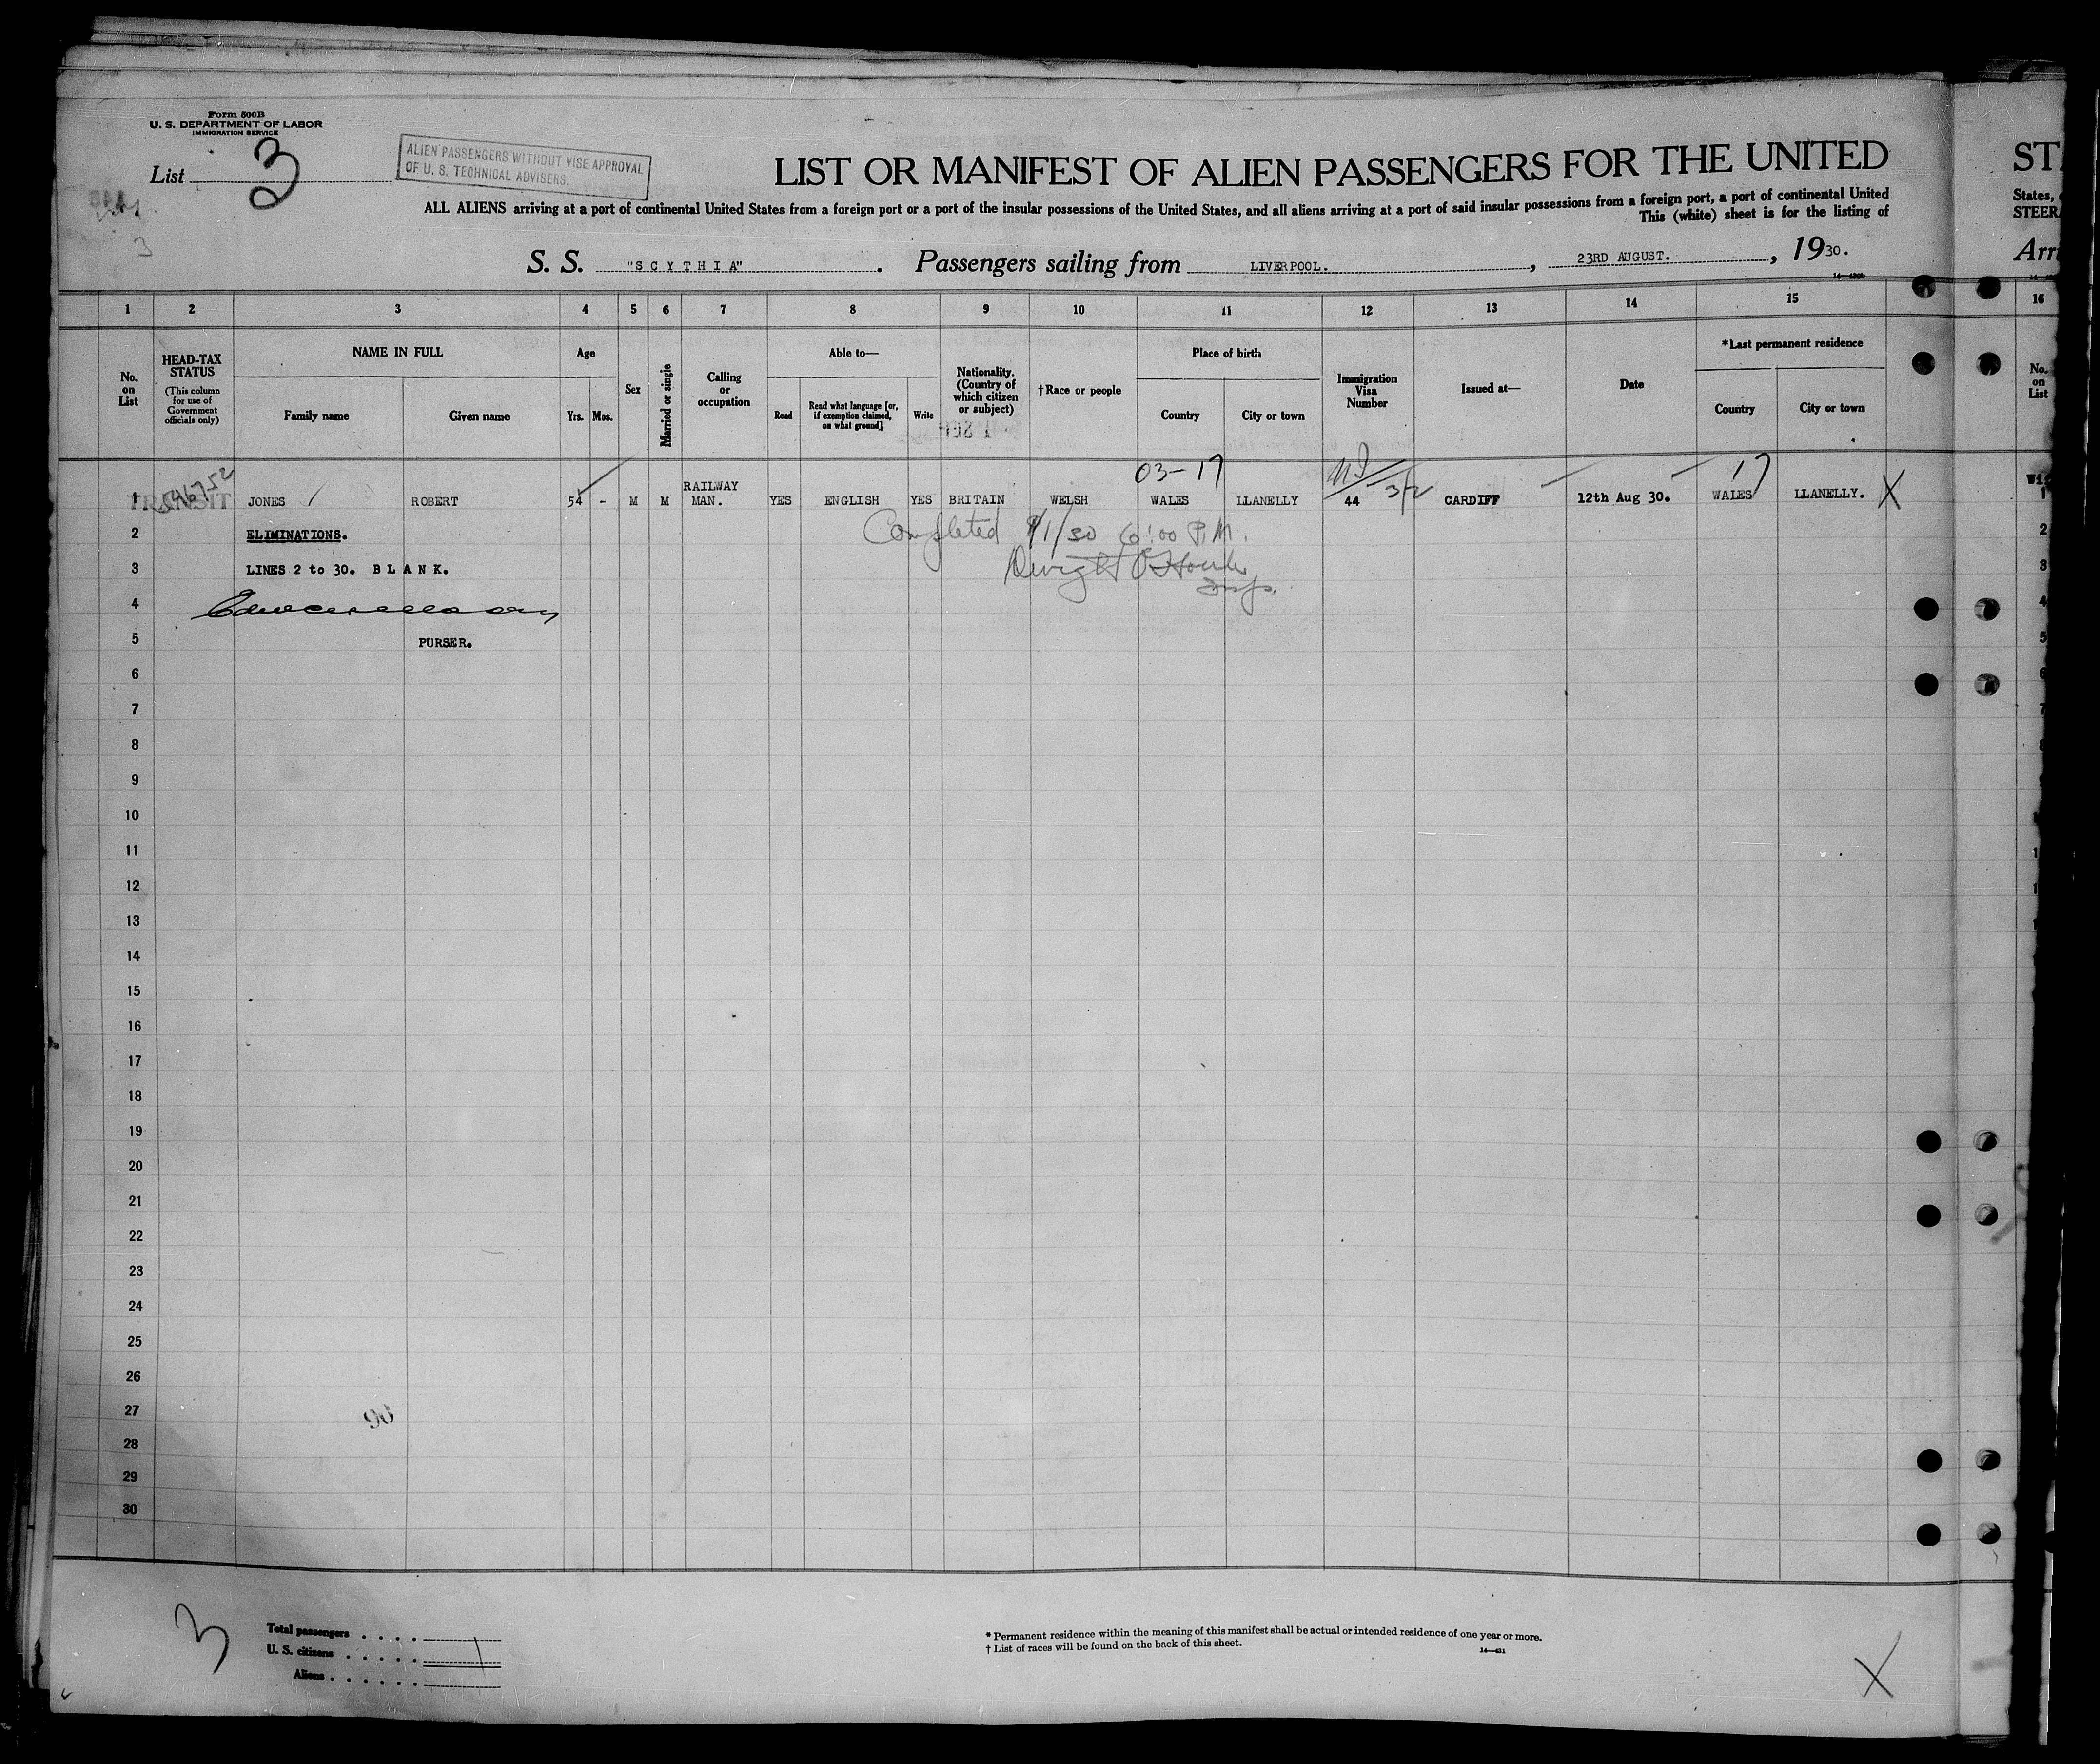 Form 500B
U. S. DEPARTMENT OF LABOR
IMMIGRATION SERVICE
List 3
ALIEN PASSENGERS WITHOUT VISE APPROVAL
OF U. S. TECHNICAL ADVISERS.
3
LIST OR MANIFEST OF ALIEN PASSENGERS FOR THE UNITED
ALL ALIENS arriving at a port of continental United States from a foreign port or a port of the insular possessions of the United States, and all aliens arriving at a port of said insular possessions from a foreign port, a port of continental United
This (white) sheet is for the listing of
S. S. "SCYTHIA". Passengers sailing from LIVERPOOL., 23RD AUGUST., 1930.
ST
States,
STEER
Arri
1 2 3 4 5 6 7 8 9 10 11 12 13 14 15 16
No. on List
HEAD-TAX STATUS
(This column for use of Government officials only)
NAME IN FULL
Family name
Given name
Age
Yrs. Mos.
Sex
Married or single
Calling or occupation
Able to—
Read
Read what language [or, if exemption claimed, on what ground]
Write
Nationality. (Country of which citizen or subject)
†Race or people
Place of birth
Country
City or town
Immigration Visa Number
Issued at—
Date
*Last permanent residence
Country
City or town
No. on List
03-17
17
1 TRANSIT JONES ROBERT 54 - M M RAILWAY MAN. YES ENGLISH YES BRITAIN WELSH WALES LLANELLY 44 CARDIFF 12th Aug 30. WALES LLANELLY. X 1
2 ELIMINATIONS. Completed 9/1/30 6:00 P.M. 2
3 LINES 2 to 30. BLANK. Dwight 3
Insp.
4 4
5 PURSER. 5
6
7
8
9
10
11
12
13
14
15
16
17
18
19
20
21
22
23
24
25
26
27
28
29
30
3
Total passengers . . . .
U. S. citizens . . . . . 1
Aliens . . . . . .
* Permanent residence within the meaning of this manifest shall be actual or intended residence of one year or more.
† List of races will be found on the back of this sheet.
14—431
X